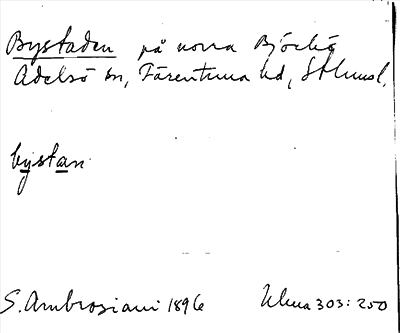 Bystaden på norra Björkö
Adelsö sn, Färentuna hd, Sthmsl.
bystan
S. Ambrosiani 1896 Ulma 303:250